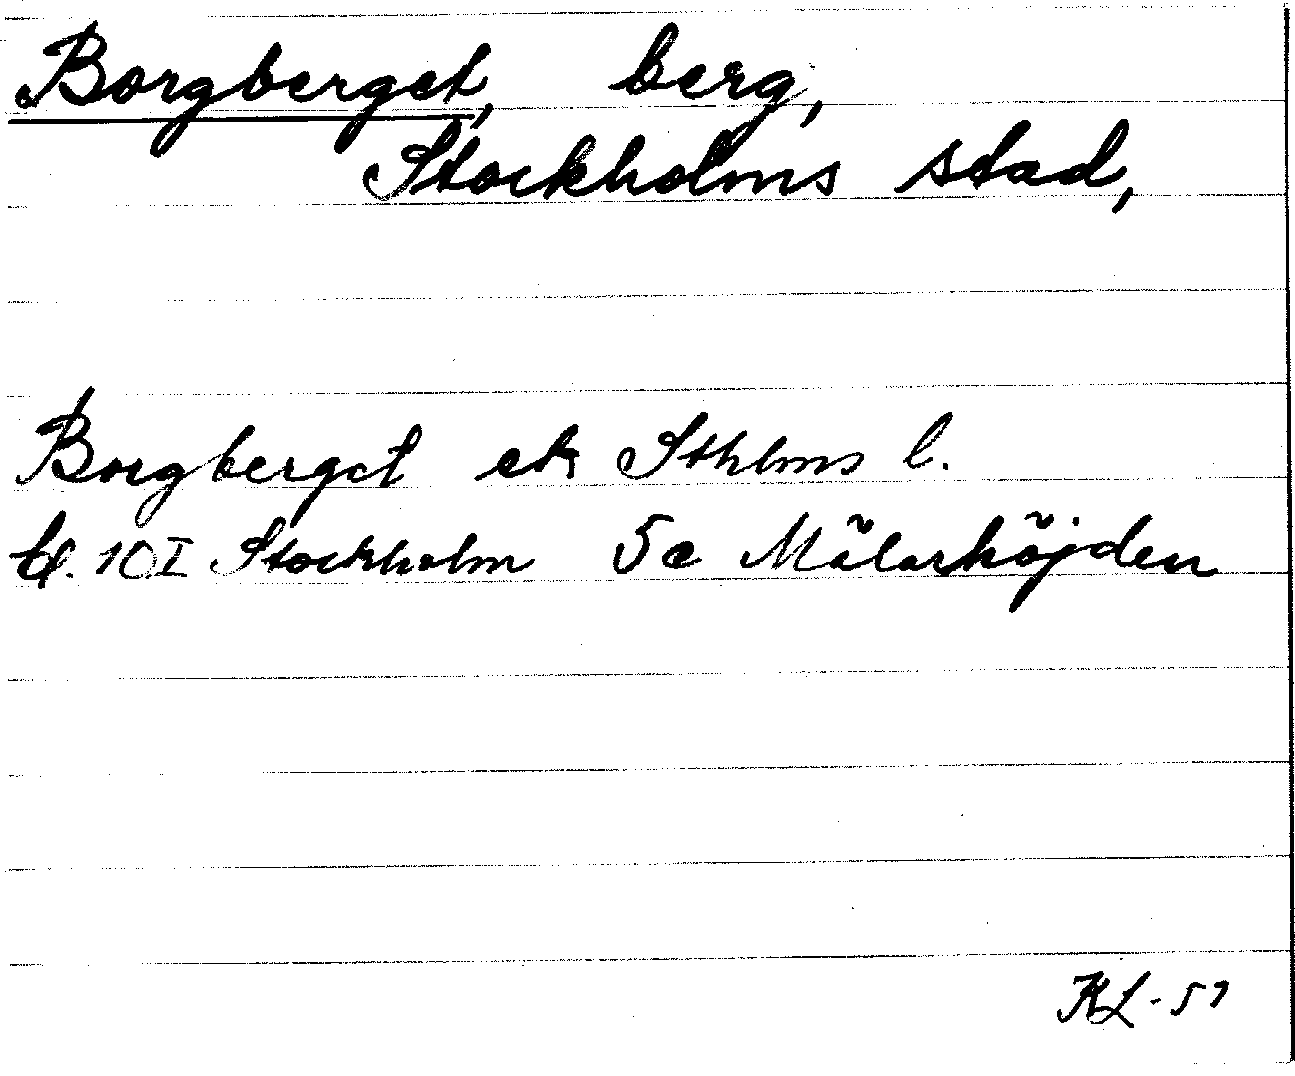 Borgberget, berg,
Stockholms stad,
Borgberget ek Sthlms l.
bl. 10 I Stockholm 5e Mälarhöjden
KL-57